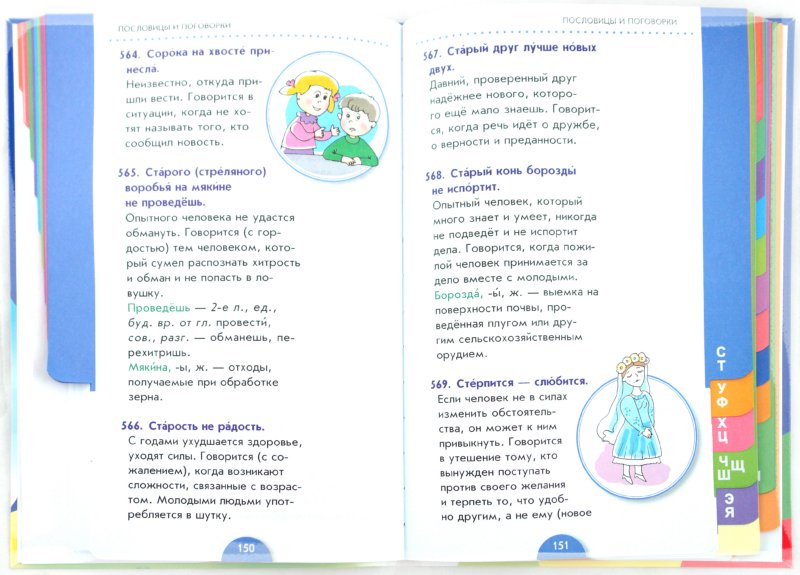 ПОСЛОВИЦЫ И ПОГОВОРКИ
564. Соро́ка на хвосте́ при-
несла.
Неизвестно, откуда при-
шли вести. Говорится в
ситуации, когда не хо-
тят называть того, кто
сообщил новость.
565. Ста́рого (стре́ляного)
воробья́ на мяки́не
не проведёшь.
Опытного человека не удастся
обмануть. Говорится (с гор-
достью) тем человеком, кото-
рый сумел распознать хитрость
и обман и не попасть в ло-
вушку.
Проведёшь — 2-е л., ед.,
буд. вр. от гл. провести́,
сов., разг. — обманешь, пе-
рехитришь.
Мяки́на, -ы, ж. — отходы,
получаемые при обработке
зерна.
566. Ста́рость не ра́дость.
С годами ухудшается здоровье,
уходят силы. Говорится (с со-
жалением), когда возникают
сложности, связанные с возрас-
том. Молодыми людьми упот-
ребляется в шутку.
150
ПОСЛОВИЦЫ И ПОГОВОРКИ
567. Ста́рый друг лу́чше но́вых
двух.
Давний, проверенный друг
надёжнее нового, которо-
го ещё мало знаешь. Говорит-
ся, когда речь идёт о дружбе,
о верности и преданности.
568. Ста́рый конь борозды́
не испо́ртит.
Опытный человек, который
много знает и умеет, никогда
не подведёт и не испортит
дела. Говорится, когда пожи-
лой человек принимается за
дело вместе с молодыми.
Борозда́, -ы́, ж. — выемка на
поверхности почвы, про-
ведённая плугом или дру-
гим сельскохозяйственным
орудием.
569. Сте́рпится — слю́бится.
Если человек не в силах
изменить обстоятель-
ства, он может к ним
привыкнуть. Говорится
в утешение тому, кто
вынужден поступать
против своего желания
и терпеть то, что удоб-
но другим, а не ему (новое
151
С
Т
У
Ф
Х
Ц
Ч
Ш Щ
Э
Я